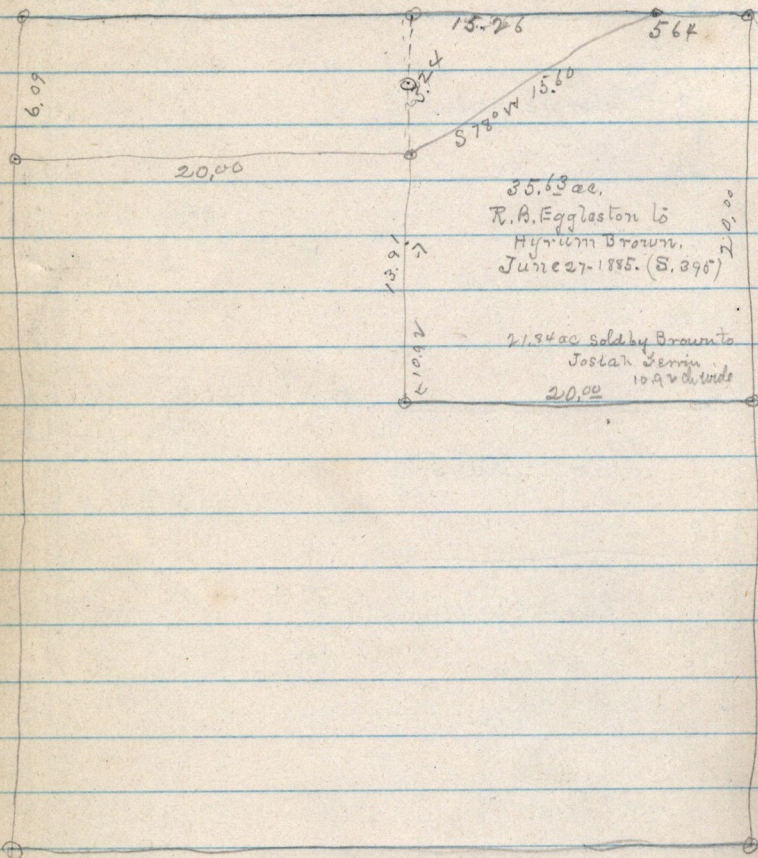 15.26
564
6.09
3.24
S 78° W 15.60
20,00
35.63 ac.
R.B. Eggleston to
Hyrum Brown.
June 27-1885. (S. 395)
20,00
13.91
21.84 ac sold by Brown to
Josiah Ferrin
10.92 ch wide
10.92
20,00